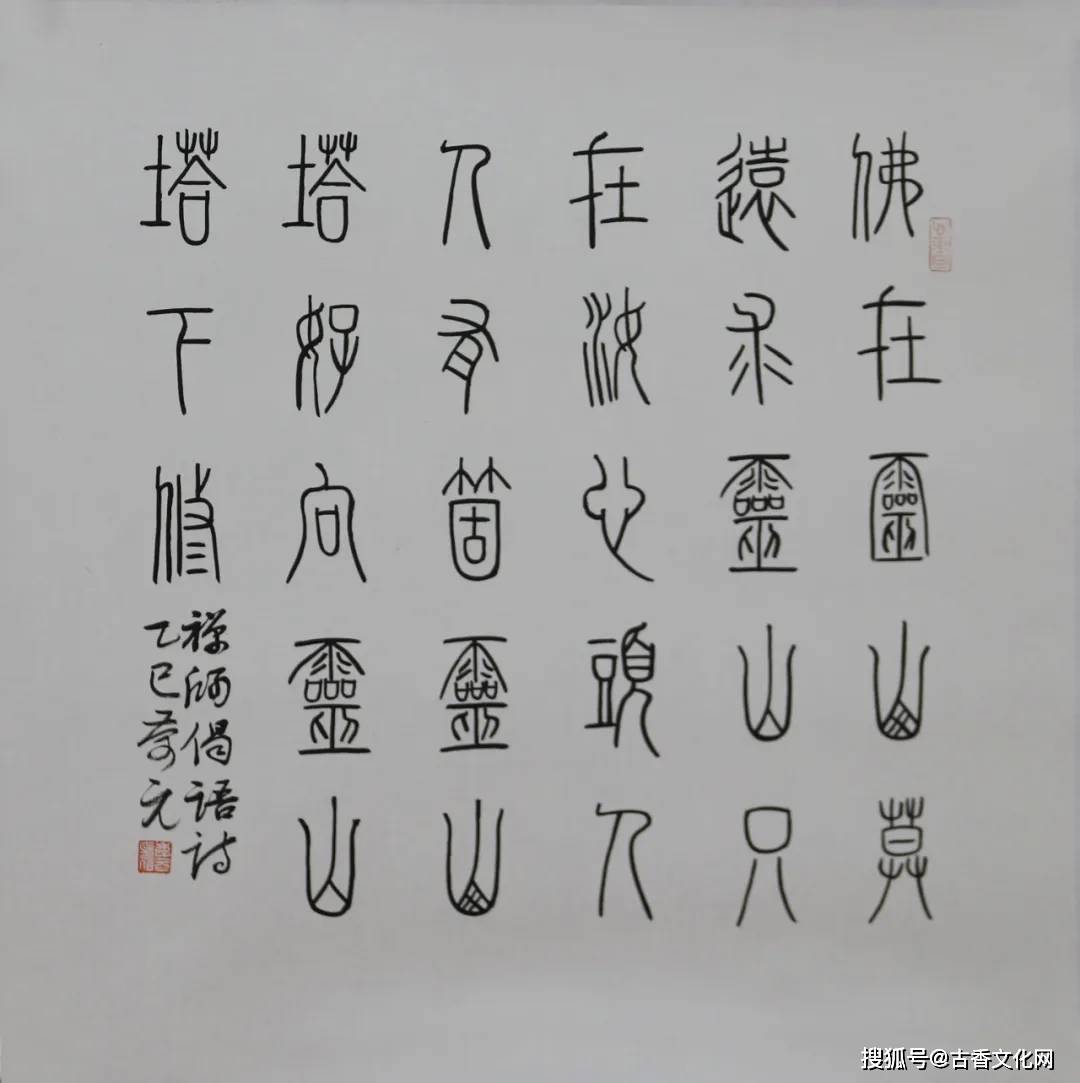 佛在靈山莫
遠求靈山只
在汝心頭人
人有箇靈山
塔好向靈山
塔下修
禪師偈語詩
乙巳元
搜狐号@古香文化网